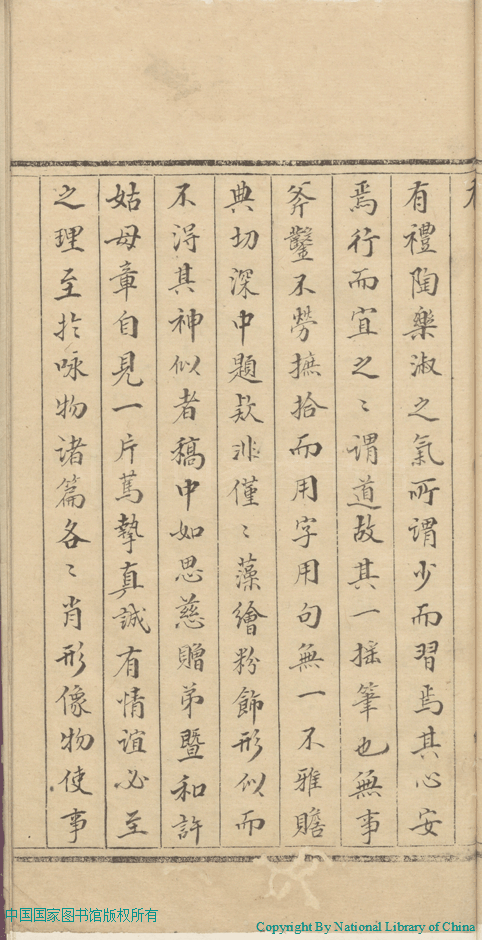 有禮陶樂淑之氣所謂少而習焉其心安
焉行而宜之之謂道故其一搖筆也無事
斧鑿不勞摭拾而用字用句無一不雅贍
典切深中題欵非僅僅藻繪粉飾形似而
不得其神似者稿中如思慈贈弟暨和許
姑母章自見一片篤摯真誠有情誼必至
之理至於咏物諸篇各各肖形像物使事
中国国家图书馆版权所有
Copyright By National Library of China